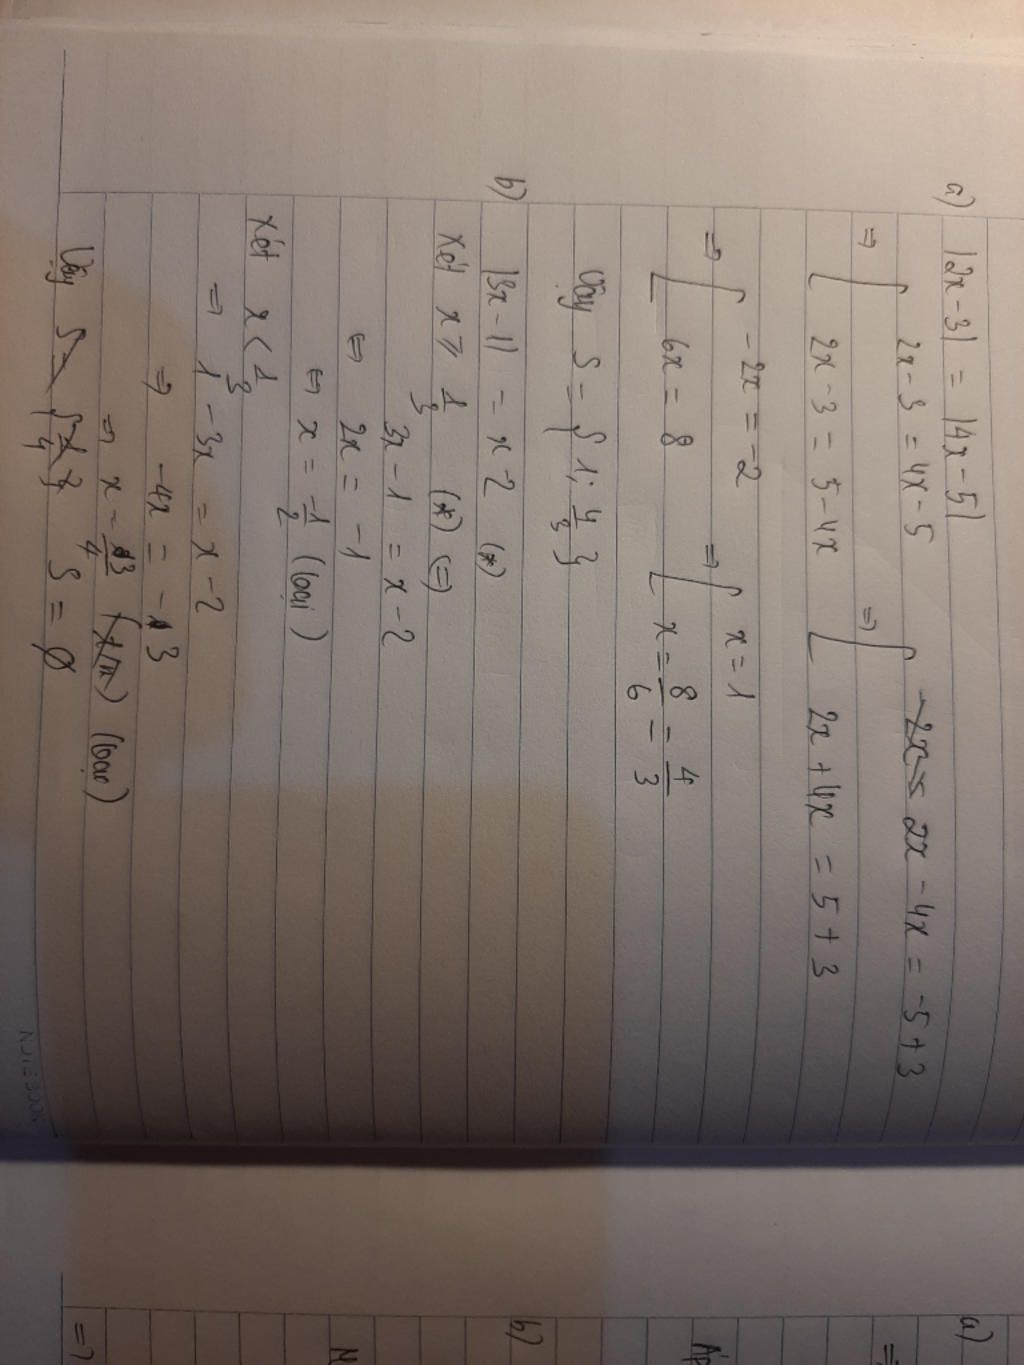 a) |2x-3| = |4x-5|
⇒ [ 2x-3 = 4x-5 ⇒ [ 2x-4x = -5+3
2x-3 = 5-4x 2x+4x = 5+3
⇒ [ -2x = -2 ⇒ [ x = 1
6x = 8 x = 8/6 = 4/3
Vậy S = {1; 4/3}
b) |3x-1| = x-2 (*)
Xét x ≥ 1/3 (*) ⇔
3x-1 = x-2
⇔ 2x = -1
⇔ x = -1/2 (loại)
Xét x < 1/3
⇒ 1-3x = x-2
⇒ -4x = -3
⇒ x = 3/4 (loại)
Vậy S = ∅
NOTEBOOK
a)
b)
⇒